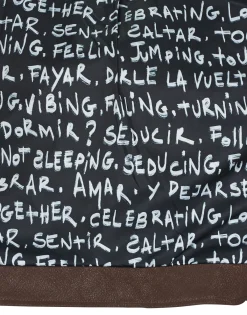 OGETHER, CELEBRATING, LO
SENTIR, SALTAR, TO
TING, FEELING, JMPING, TOU
R, FAYAR, DARLE LA VUELT
G, VIBING, FALLING, TURNIN
DORMIR? SEDUCIR, FOLL
NOT SLEEPING, SEDUCING, FU
BRAR, AMAR Y DEJARSE
OGETHER, CELEBRATING, LO
R, SENTIR, SALTAR, TO
TING, FEELING, JUMPING, TOU